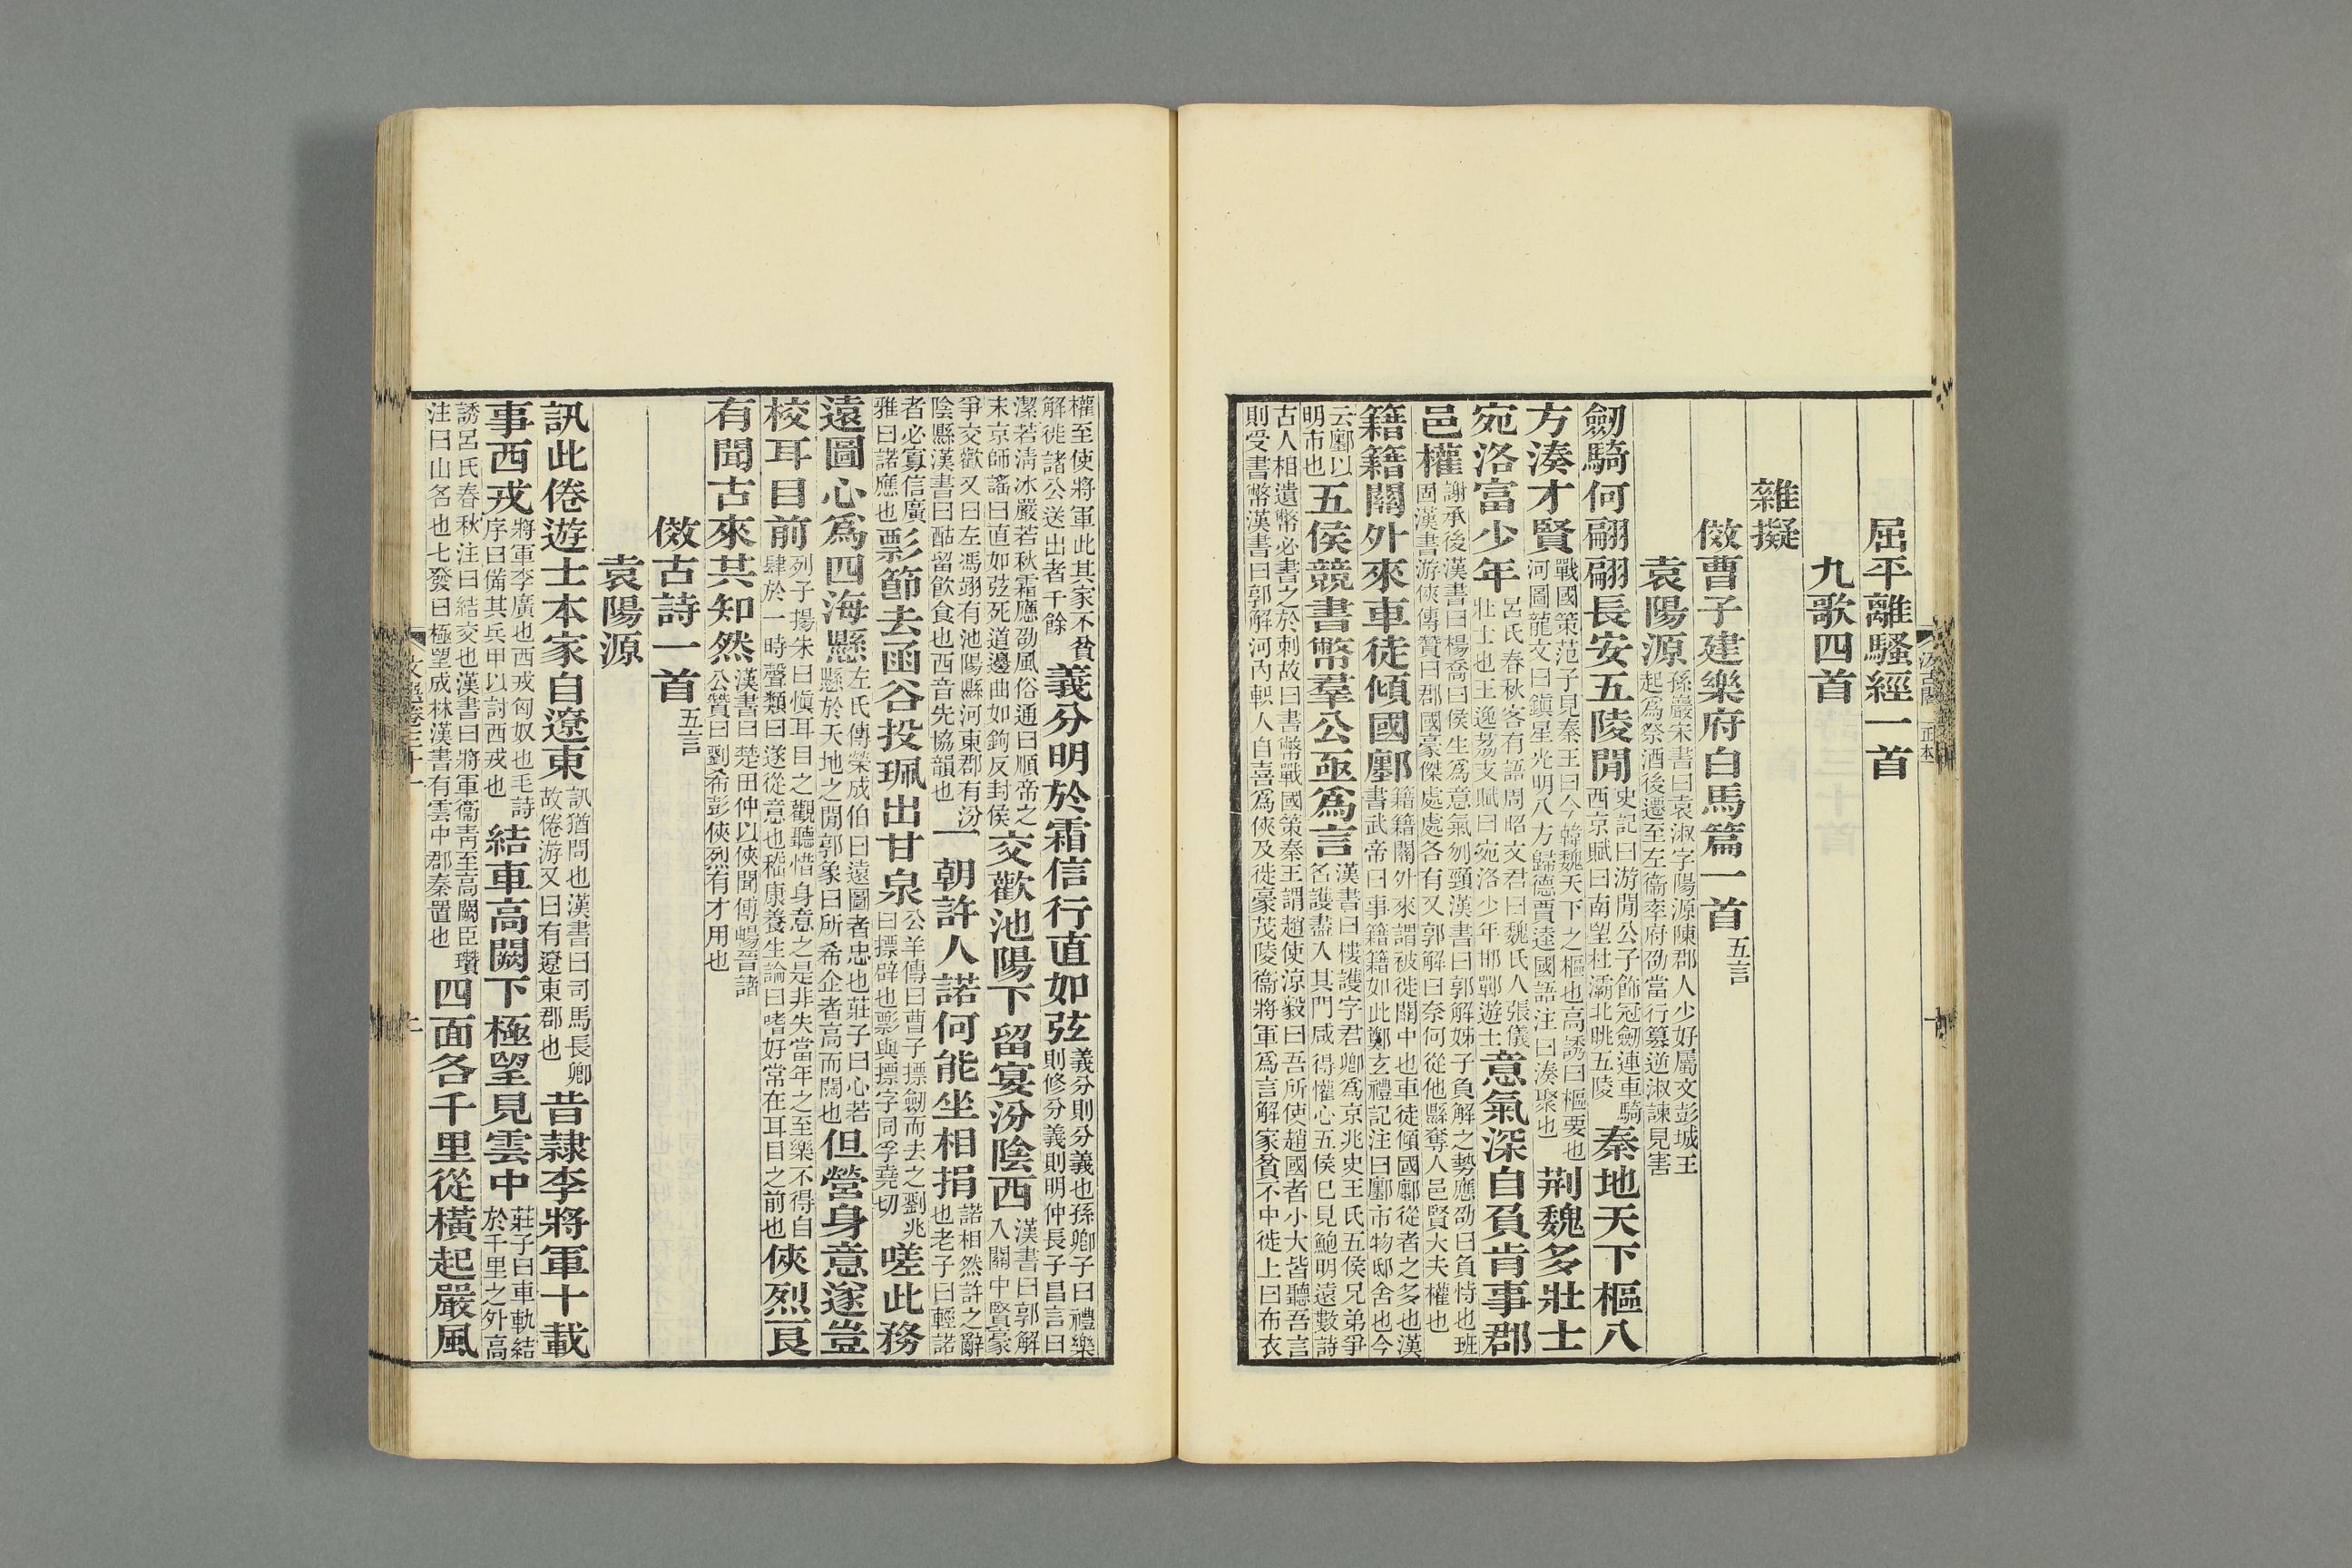 汲古閣 正本
屈平離騷經一首
九歌四首
雜擬
傚曹子建樂府白馬篇一首五言
袁陽源孫巖宋書曰袁淑字陽源陳郡人少好屬文彭城王起爲祭酒後遷至左衞率府劭當行篡逆淑諫見害
劒騎何翩翩長安五陵閒史記曰游閒公子飾冠劒連車騎西京賦曰南望杜灞北眺五陵秦地天下樞八
方湊才賢戰國策范子見秦王曰今韓魏天下之樞也高誘曰樞要也河圖龍文曰鎭星光明八方歸德賈逵國語注曰湊聚也荆魏多壯士
宛洛富少年呂氏春秋客有語周昭文君曰魏氏人張儀壯士也王逸荔支賦曰宛洛少年邯鄲遊士意氣深自負肯事郡
邑權謝承後漢書曰楊喬曰侯生爲意氣刎頸漢書曰郭解姊子負解之勢應劭曰負恃也班固漢書游俠傳贊曰郡國豪傑處處各有又郭解曰奈何從他縣奪人邑賢大夫權也
籍籍關外來車徒傾國鄽籍籍關外來謂被徙關中也車徒傾國鄽從者之多也漢書武帝曰事籍籍如此鄭玄禮記注曰鄽市物邸舍也今
云鄽以明市也五侯競書幣羣公亟爲言漢書曰樓護字君卿爲京兆史王氏五侯兄弟爭名護盡入其門咸得懽心五侯已見鮑明遠數詩
古人相遺幣必書之於刺故曰書幣戰國策秦王謂趙使涼毅曰吾所使趙國者小大皆聽吾言則受書幣漢書曰郭解河內軹人自喜爲俠及徙豪茂陵衞將軍爲言解家貧不中徙上曰布衣
權至使將軍此其家不貧解徙諸公送出者千餘義分明於霜信行直如弦義分則分義也孫卿子曰禮樂則修分義則明仲長子昌言曰
潔若清冰嚴若秋霜應劭風俗通曰順帝之末京師謠曰直如弦死道邊曲如鉤反封侯交歡池陽下留宴汾陰西漢書曰郭解入關中賢豪
爭交歡又曰左馮翊有池陽縣河東郡有汾陰縣漢書曰酤留飲食也西音先協韻也一朝許人諾何能坐相捐諾相然許之辭也老子曰輕諾
者必寡信廣雅曰諾應也影節去函谷投珮出甘泉公羊傳曰曹子摽劒而去之劉兆曰摽辟也影與摽字同孚堯切嗟此務
遠圖心爲四海懸左氏傳榮成伯曰遠圖者忠也莊子曰心若懸於天地之閒郭象曰所希企者高而闊也但營身意遂豈
校耳目前列子揚朱曰愼耳目之觀聽惜身意之是非失當年之至樂不得自肆於一時聲類曰遂從意也嵇康養生論曰嗜好常在耳目之前也俠烈良
有聞古來共知然漢書曰楚田仲以俠聞傅暢晉諸公贊曰劉希彭俠烈有才用也
傚古詩一首五言
袁陽源
訊此倦遊士本家自遼東訊猶問也漢書曰司馬長卿故倦游又曰有遼東郡也昔隷李將軍十載
事西戎將軍李廣也西戎匈奴也毛詩序曰備其兵甲以討西戎也結車高闕下極望見雲中莊子曰車軌結於千里之外高
誘呂氏春秋注曰結交也漢書曰將軍衞靑至高闕臣瓚注曰山名也七發曰極望成林漢書有雲中郡秦置也四面各千里從橫起嚴風
文選卷三十一